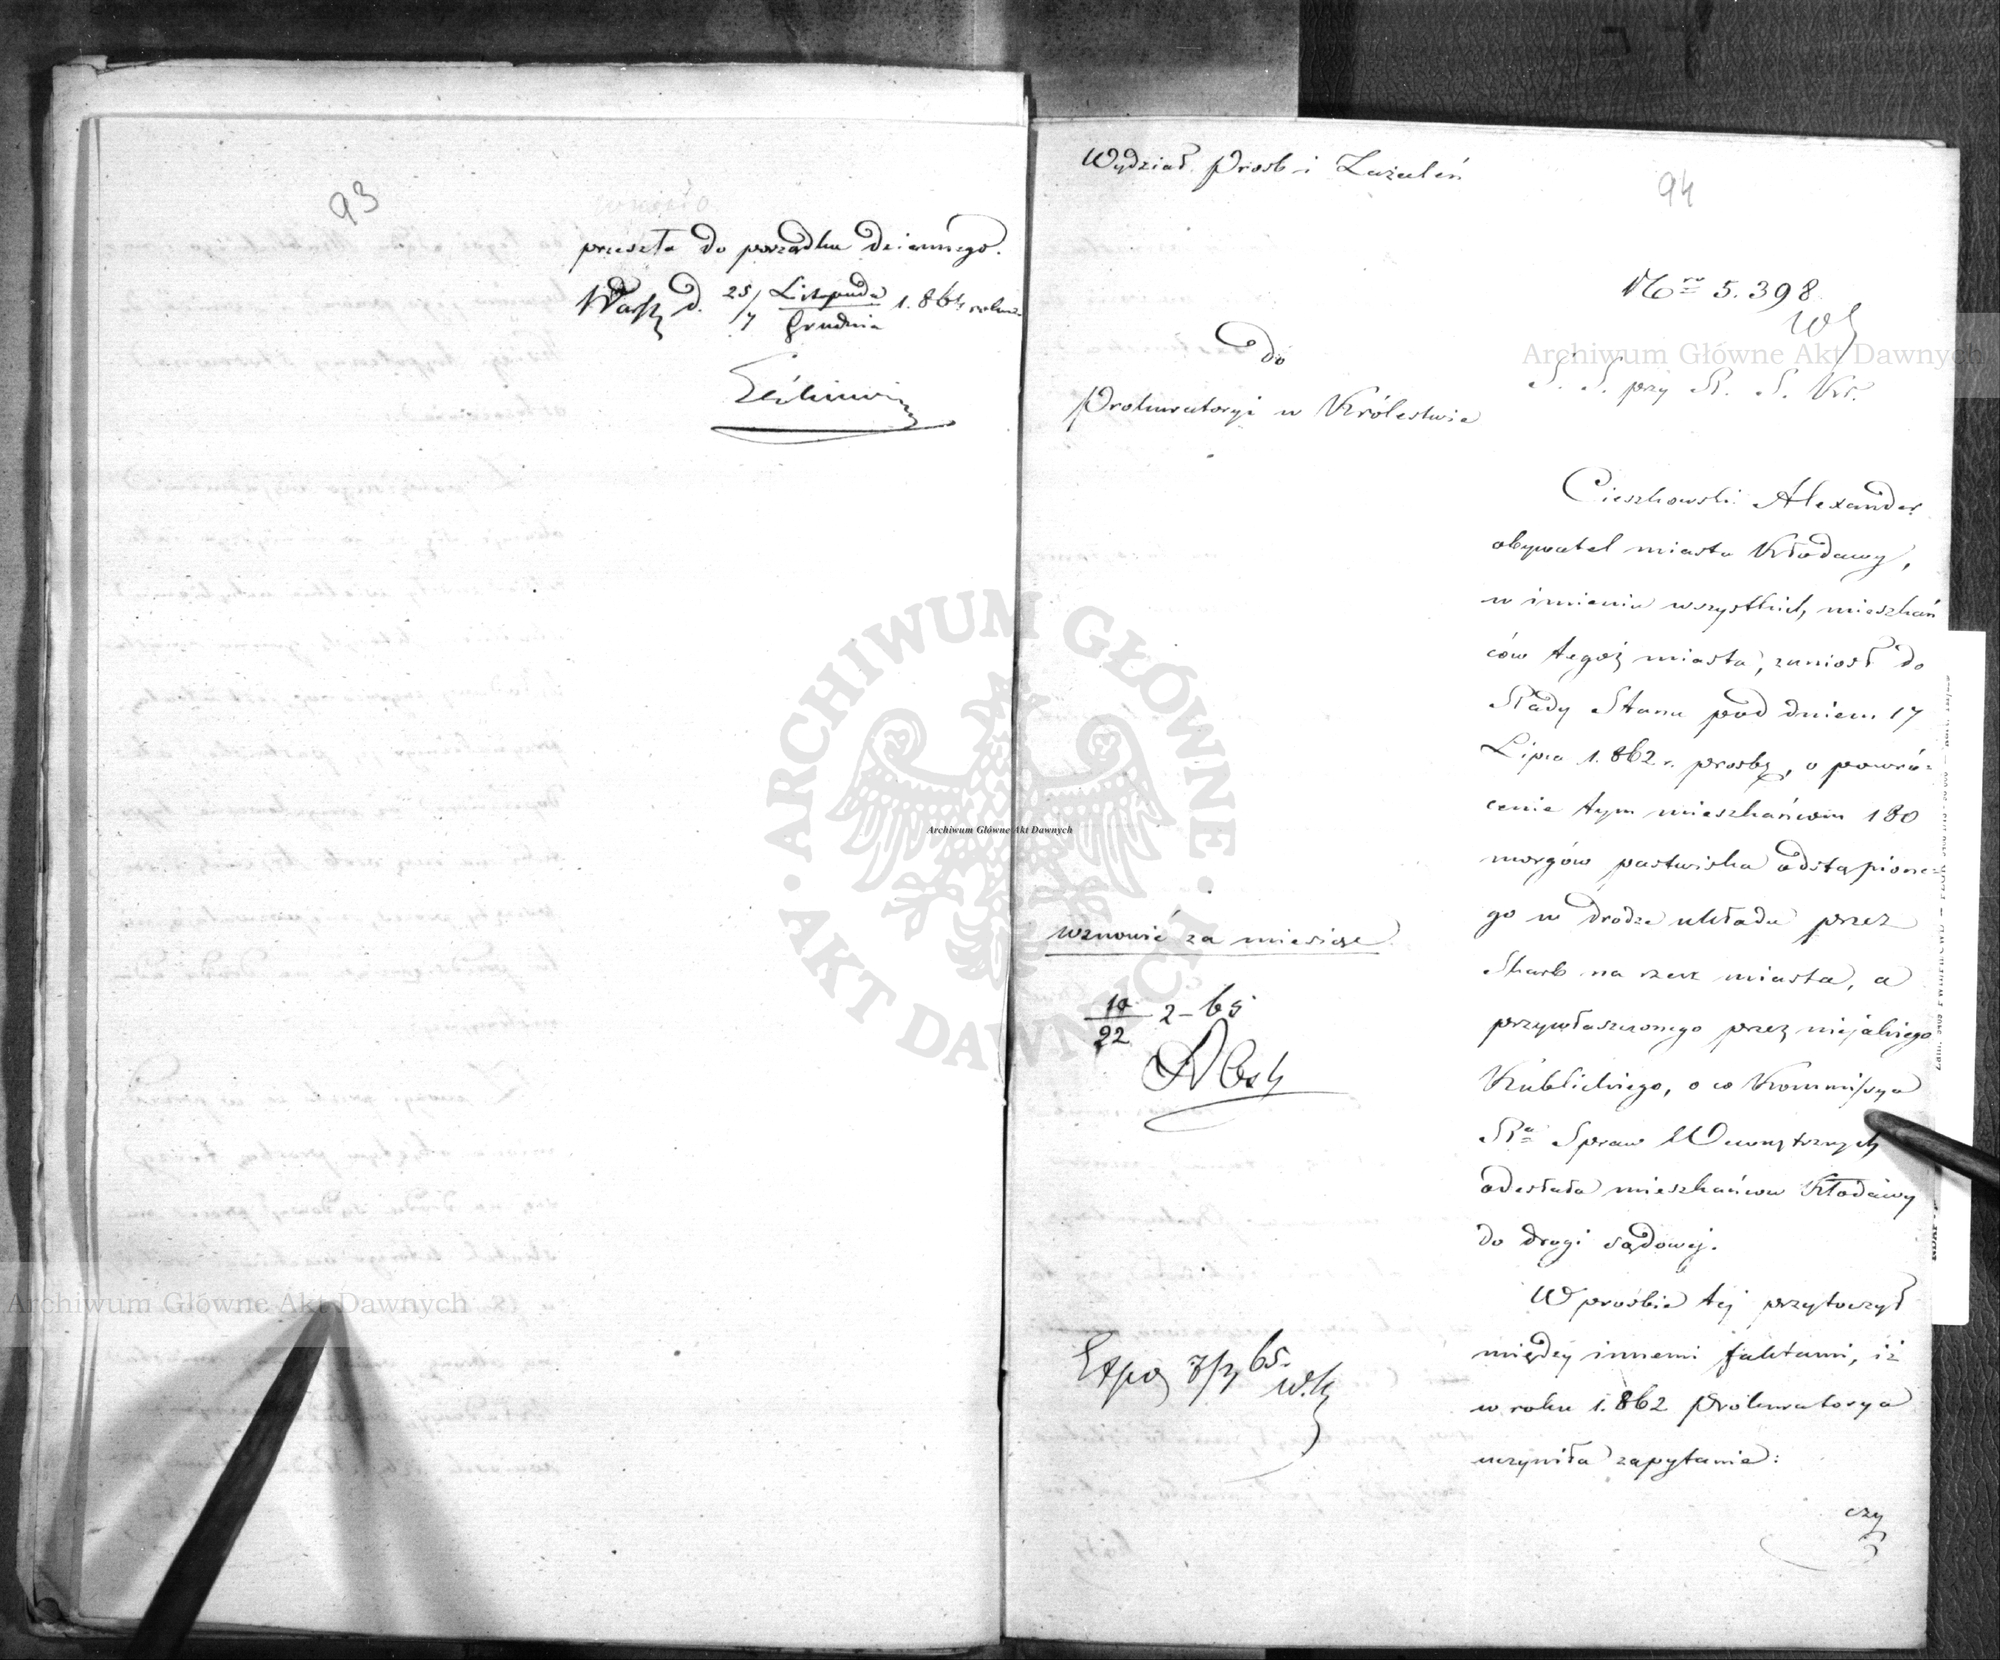 93
wniosło
przeszła do porządku dziennego.
Warsz d. 25/7 Listopada/Grudnia 1.864 roku.
94
Wydział Prosb i Zażaleń
Nro 5.398.
S. S. przy R. S. Kr.
Do
Prokuratoryi w Królestwie
Cieszkowski Alexander
obywatel miasta Kłodawy,
w imieniu wszystkich mieszkań
ców tegoż miasta, zaniosł do
Rady Stanu pod dniem 17
Lipca 1.862 r. prosbę, o powró-
cenie tym mieszkańcom 180
morgów pastwiska odstąpione-
go w drodze układu przez
Skarb na rzecz miasta, a
przywłaszczonego przez niejakiego
Kublickiego, o co Kommissya
Ra Spraw Wewnętrznych
odesłała mieszkańców Kłodawy
do drogi sądowej.
W prośbie tej przytoczył
między innemi faktami, iż
w roku 1.862 Prokuratorya
uczyniła zapytanie:
czy
wznowić za miesiąc.
10/22 2-65
Expo 7/3 65.
Archiwum Główne Akt Dawnych
Archiwum Główne Akt Dawnych
Archiwum Główne Akt Dawnych
ARCHIWUM GŁÓWNE AKT DAWNYCH